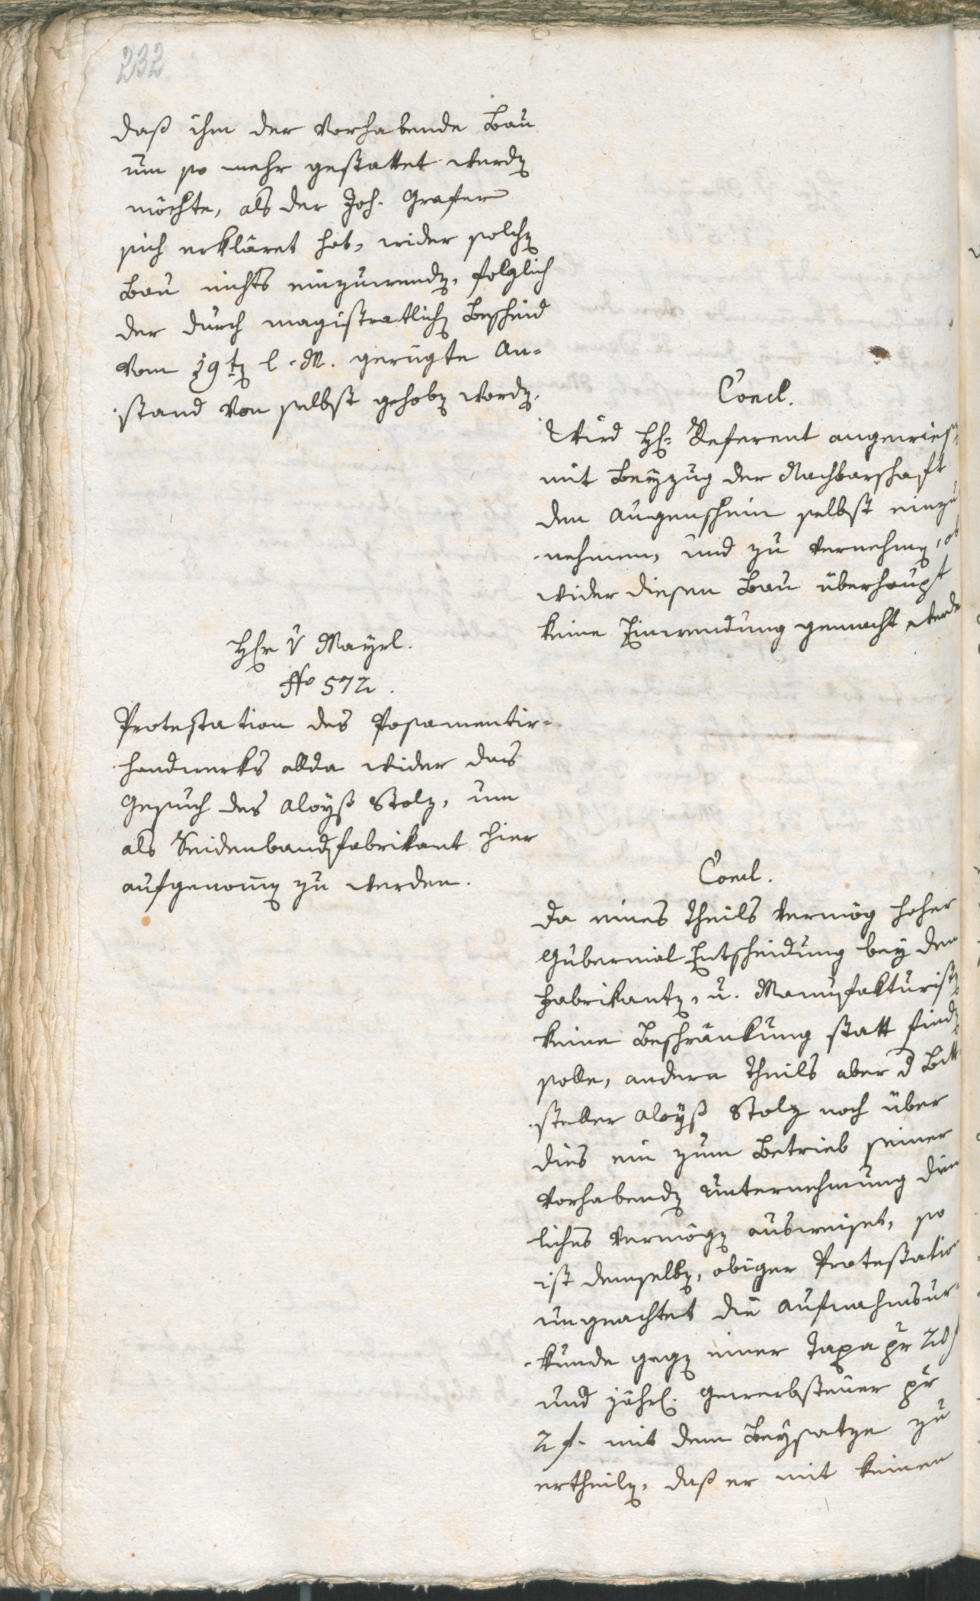 232
daß ihm der vorhabende Bau
um so mehr gestattet werden
möchte, als der Joh. Grafer
sich erkläret hab, wider solchen
Bau nichts einzuwenden, folglich
der durch magistratlichen Bescheid
vom 19ten l. M. gerügte An-
stand von selbst gehoben worden.
Concl.
Wird Hr. Referent angewiesen
mit Beyzug der Nachbarschaft
den Augenschein selbst einzu
nehmen, und zu vernehmen, ob
wider diesen Bau überhaupt
keine Einwendung gemacht werde
Hr. v Mayrl.
No 572.
Protestation des Posamentir-
handwerks allda wider das
Gesuch des Aloyß Stolz, um
als Seidenbandfabrikant hier
aufgenommen zu werden.
Concl.
Da eines Theils vermög hoher
Gubernial Entscheidung bey den
Fabrikanten, u. Manufakturisten
keine Beschränkung statt finden
solle, andern Theils aber d Bitt
steller Aloyß Stolz noch über
dies ein zum Betrieb seiner
vorhabenden Unternehmung dien
liches Vermögen ausweiset, so
ist demselben, obiger Protestation
ungeachtet die Aufnahmsur
kunde gegen einer Taxa pr 20 f
und jährl. Gewerbsteuer pr
2 f. mit dem Beysatze zu
ertheilen, daß er mit keinen